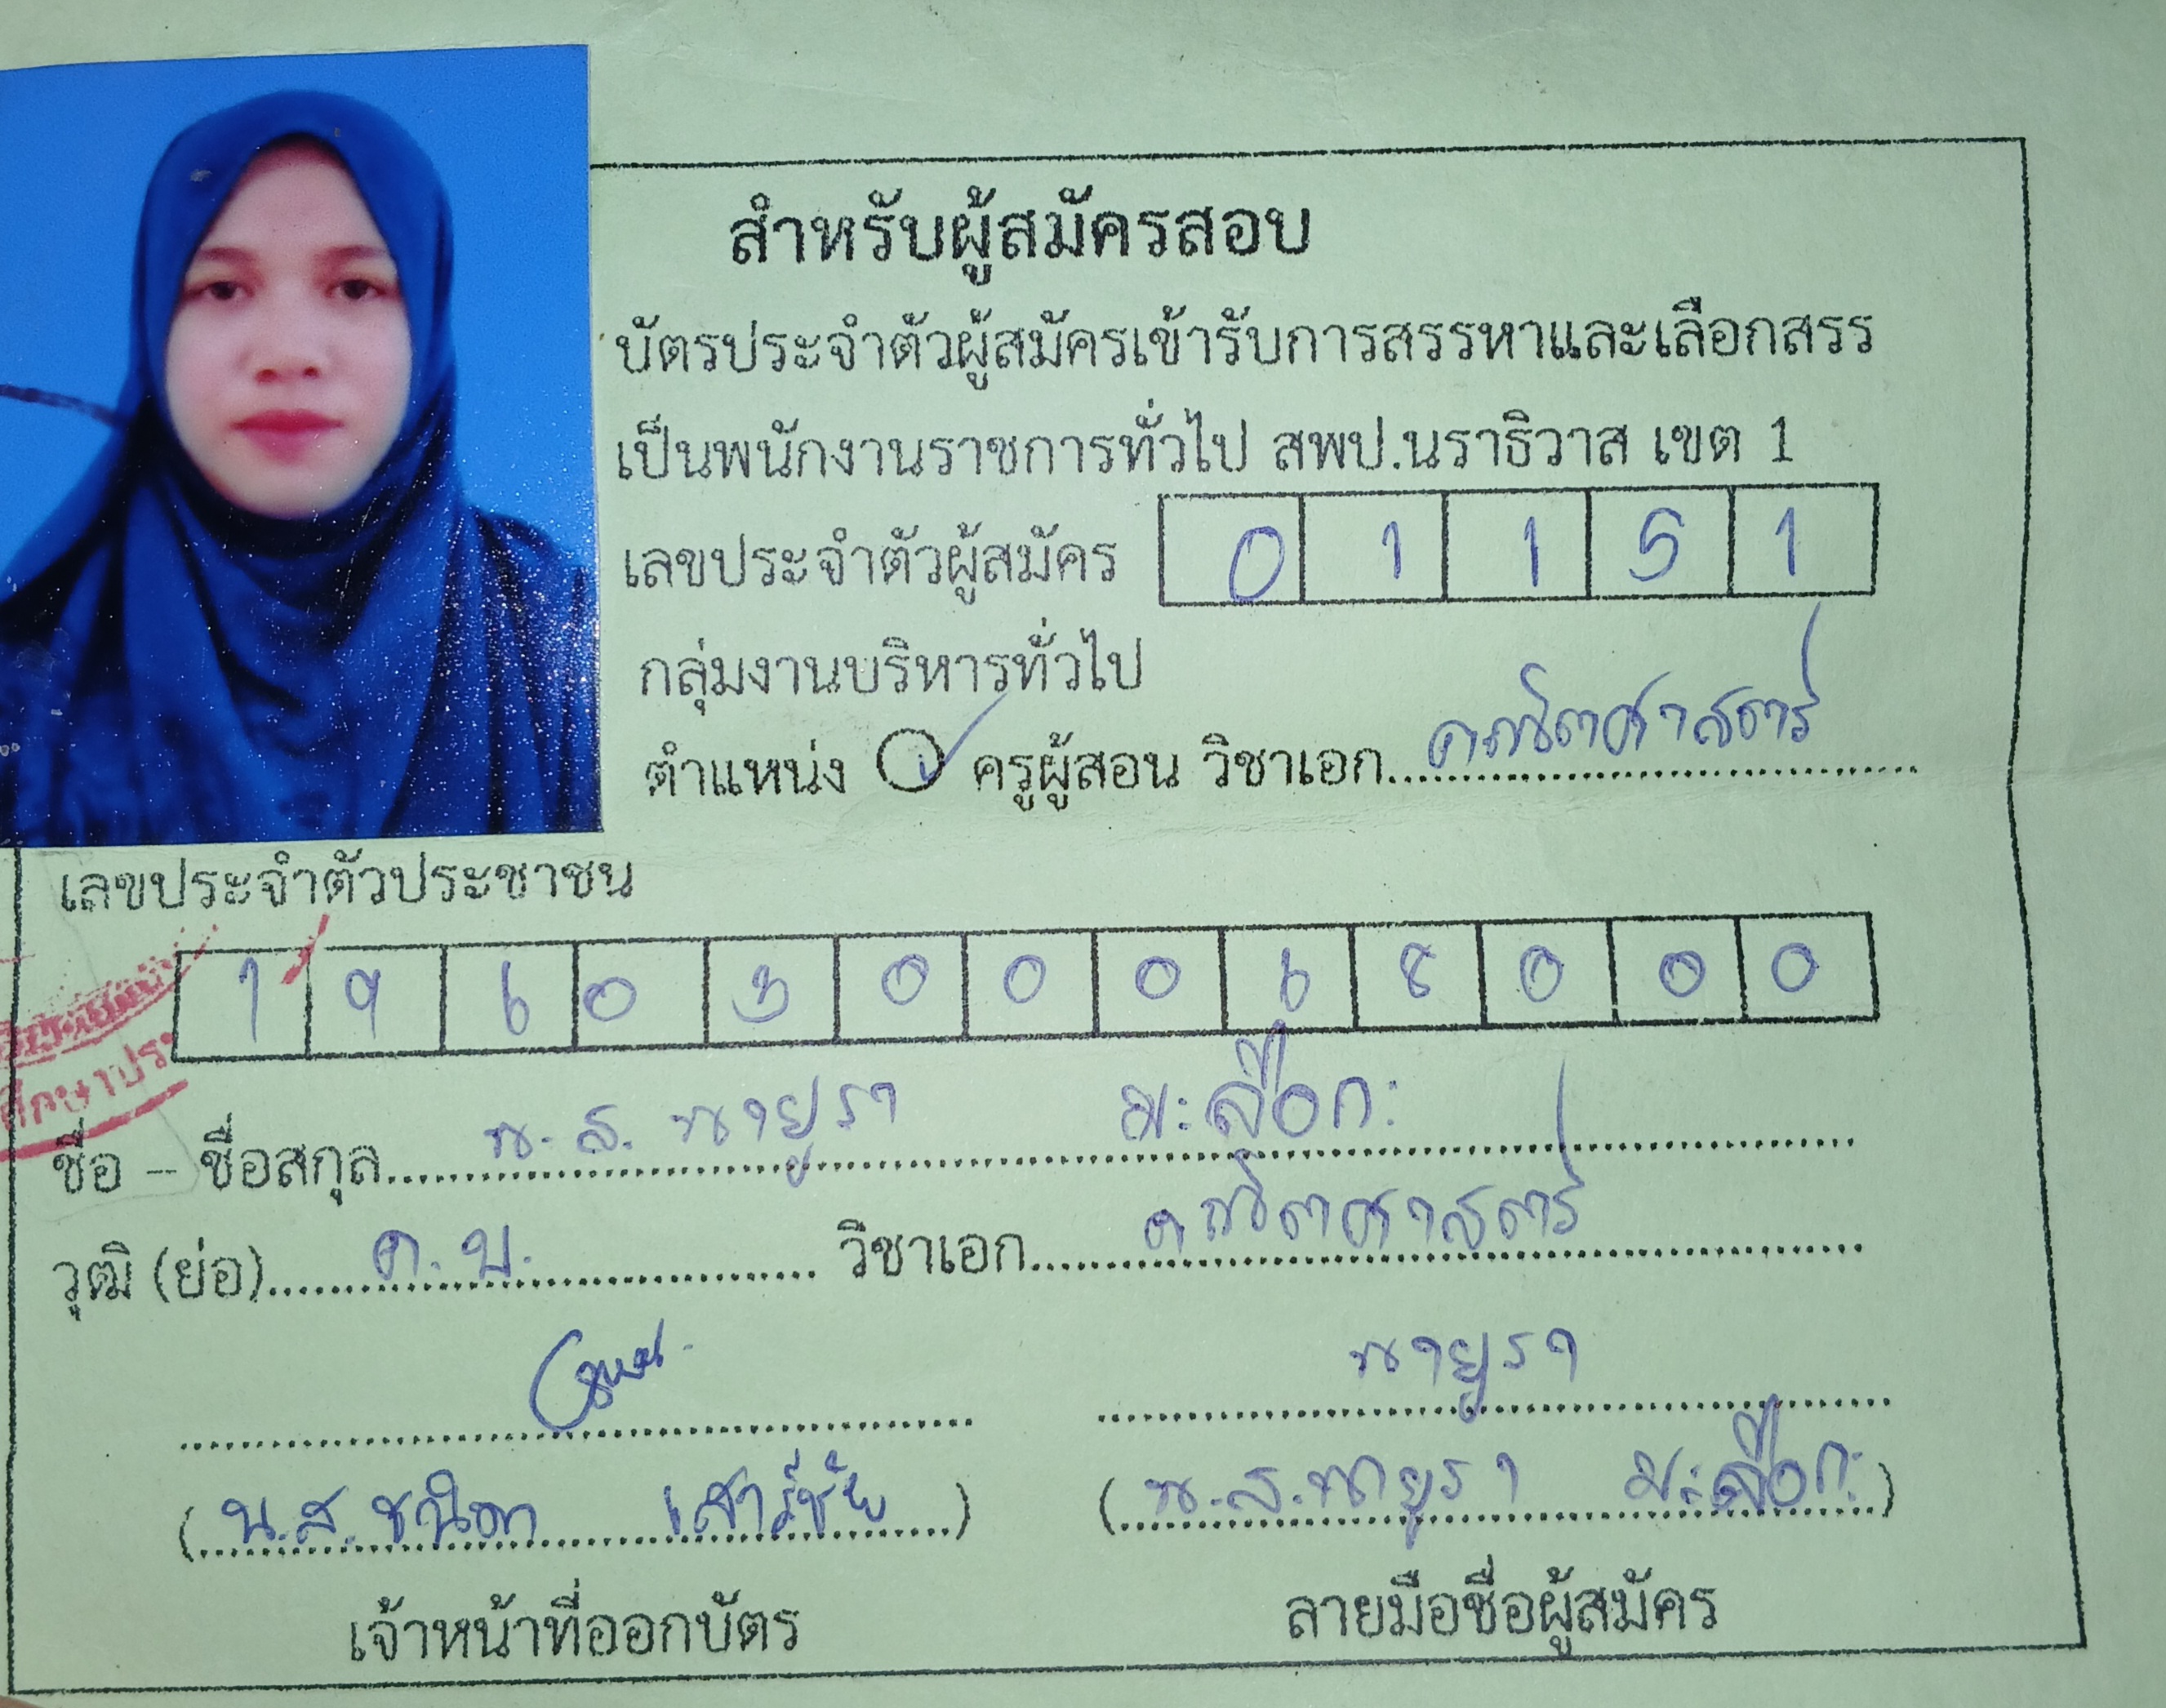 สำหรับผู้สมัครสอบ
บัตรประจำตัวผู้สมัครเข้ารับการสรรหาและเลือกสรร
เป็นพนักงานราชการทั่วไป สพป.นราธิวาส เขต 1
เลขประจำตัวผู้สมัคร 0 1 1 5 1
กลุ่มงานบริหารทั่วไป
ตำแหน่ง ครูผู้สอน วิชาเอก คณิตศาสตร์
เลขประจำตัวประชาชน
1 9 6 0 3 0 0 0 6 8 0 0 0
ศึกษาประ
ชื่อ - ชื่อสกุล น.ส. นายูรา มะลือกะ
วุฒิ (ย่อ) ค.บ. วิชาเอก คณิตศาสตร์
นายูรา
(น.ส. เสาร์ชัย) (น.ส.นายูรา มะลือกะ)
เจ้าหน้าที่ออกบัตร ลายมือชื่อผู้สมัคร